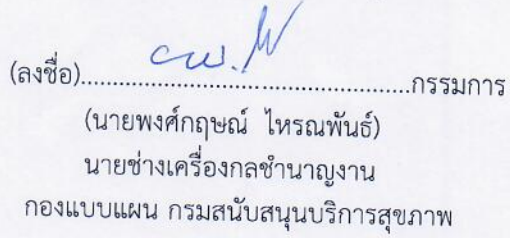 (ลงชื่อ)..................................................กรรมการ
(นายพงศ์กฤษณ์ ไหรณพันธ์)
นายช่างเครื่องกลชำนาญงาน
กองแบบแผน กรมสนับสนุนบริการสุขภาพ